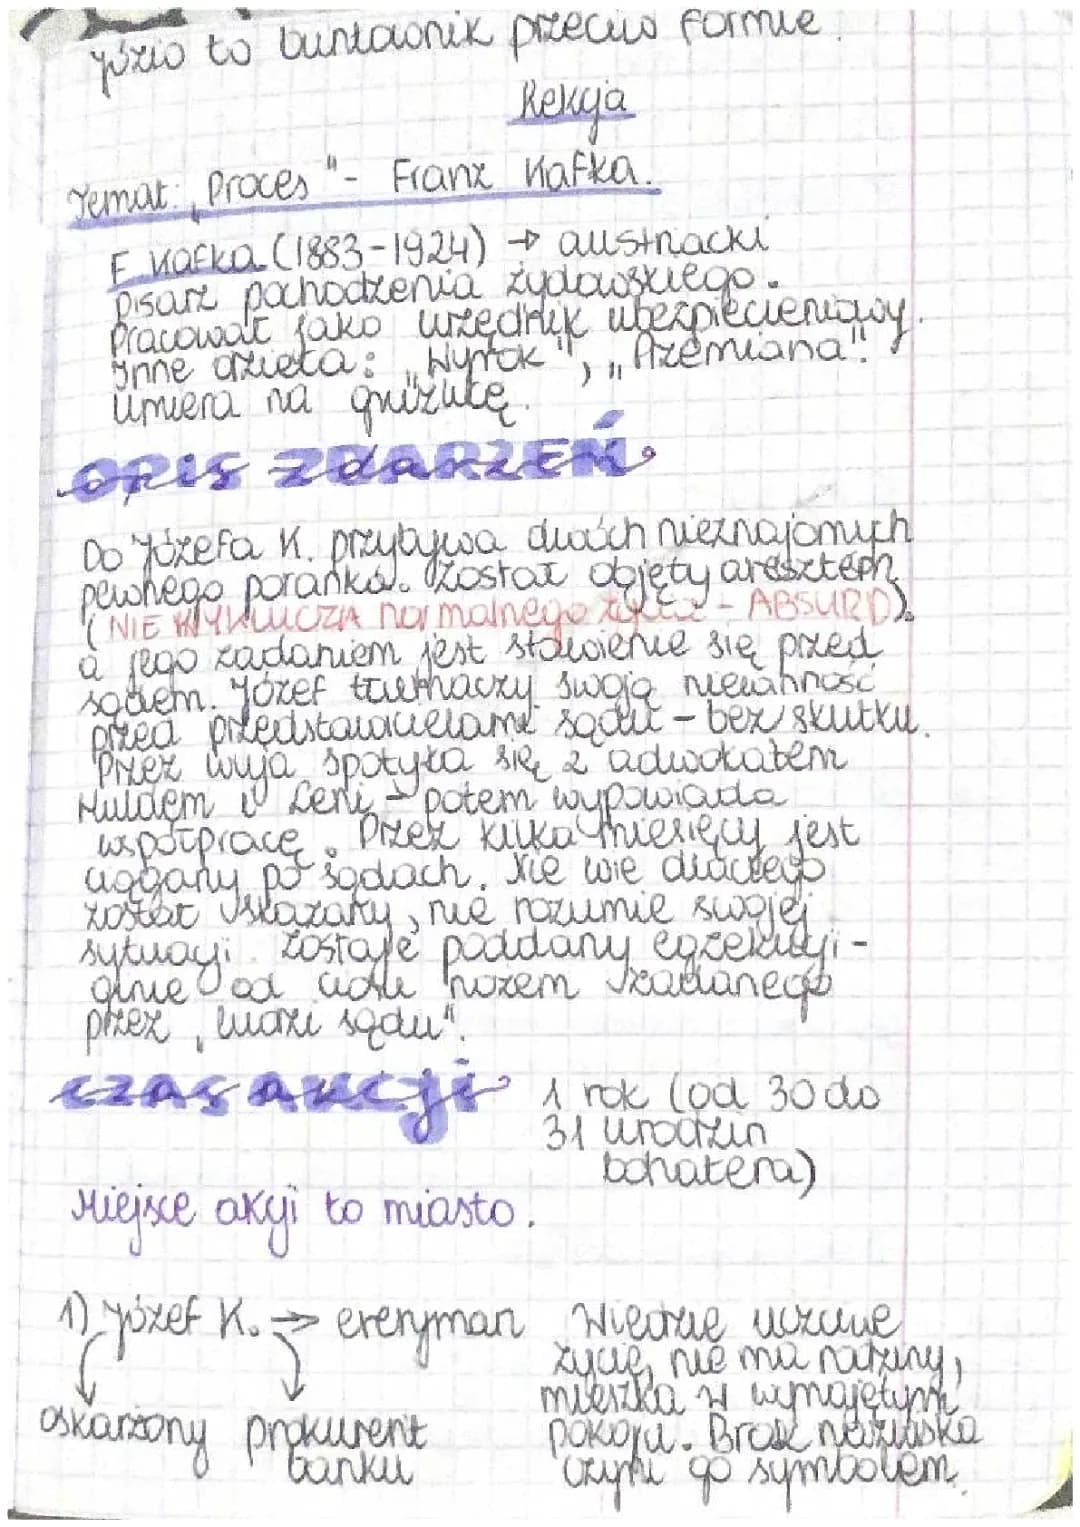 Józio to buntownik przeciw formie.
Lekcja
Temat: „Proces" - Franz Kafka.
F. Kafka (1883-1924) → austriacki
pisarz pochodzenia żydowskiego.
Pracował jako urzędnik ubezpieczeniowy.
Inne dzieła: „Wyrok", „Przemiana".
Umiera na gruźlicę.
OPIS ZDARZEŃ
Do Józefa K. przybywa dwóch nieznajomych
pewnego poranka. Został objęty aresztem
(NIE WYKLUCZA normalnego życia - ABSURD),
a jego zadaniem jest stawienie się przed
sądem. Józef tłumaczy swoją niewinność
przed przedstawicielami sądu - bez skutku.
Przez wuja spotyka się z adwokatem
Huldem i Leni - potem wypowiada
współpracę. Przez kilka miesięcy jest
ciągany po sądach. Nie wie dlaczego
został skazany, nie rozumie swojej
sytuacji. Zostaje poddany egzekucji -
ginie od ciosu nożem zadanego
przez „ludzi sądu".
czas akcji 1 rok (od 30 do
31 urodzin
bohatera)
Miejsce akcji to miasto.
1) Józef K. → everyman Wiedzie uczciwe
życie, nie ma rodziny,
mieszka w wynajętym
oskarżony prokurent pokoju. Brak nazwiska
banku czyni go symbolem.